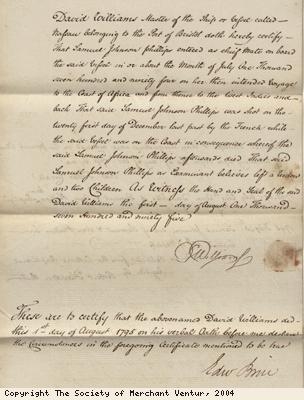 David Williams Master of the Ship or Vessel called
Nassau belonging to the Port of Bristol doth hereby certify
That Samuel Johnson Phillips entered as chief Mate on board
the said Vessel in or about the Month of July One Thousand
seven hundred and ninety four on her then intended Voyage
to the Coast of Africa and from thence to the West Indies and
back That said Samuel Johnson Phillips was Shot on the
twenty first day of December last past by the French while
the said Vessel was on the Coast in consequence whereof the
said Samuel Johnson Phillips afterwards died That said
Samuel Johnson Phillips as Examinant believes left a Widow
and two Children As Witness the Hand and Seal of the said
David Williams the first day of August One Thousand
seven Hundred and ninety five
These are to certify that the abovenamed David Williams did
this 1st day of August 1795 on his verbal Oath before me declare
the Circumstances in the foregoing Certificate mentioned to be true
Edwd Brice
Copyright The Society of Merchant Ventur, 2004